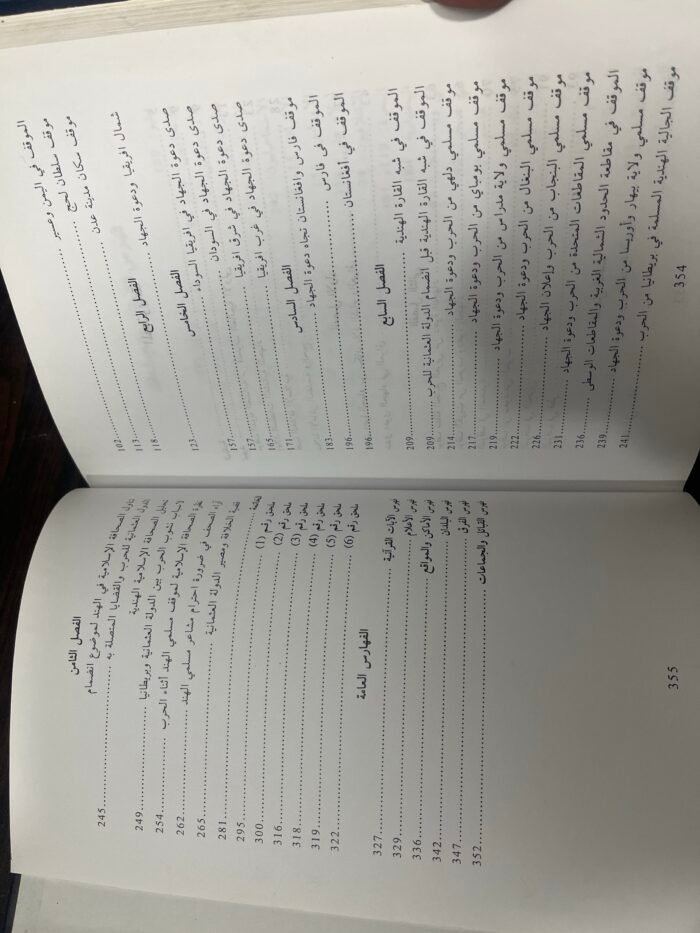 الموقف في اليمن وعسير ........ 102
موقف سلطان لحج ........ 113
موقف سكان مدينة عدن ........ 118
الفصل الرابع
شمال افريقيا ودعوة الجهاد ........ 123
الفصل الخامس
صدى دعوة الجهاد في افريقيا السوداء ........ 157
صدى دعوة الجهاد في السودان ........ 157
صدى دعوة الجهاد في شرق افريقيا ........ 165
صدى دعوة الجهاد في غرب افريقيا ........ 171
الفصل السادس
موقف فارس وافغانستان تجاه دعوة الجهاد ........ 183
الموقف في فارس ........ 196
الموقف في أفغانستان ........ 196
الفصل السابع
الموقف في شبه القارة الهندية ........ 209
الموقف في شبه القارة الهندية قبل انضمام الدولة العثمانية للحرب ........ 209
موقف مسلمي دلهي من الحرب ودعوة الجهاد ........ 214
موقف مسلمي بومباي من الحرب ودعوة الجهاد ........ 217
موقف مسلمي ولاية مدراس من الحرب ودعوة الجهاد ........ 219
موقف مسلمي البنغال من الحرب ودعوة الجهاد ........ 222
موقف مسلمي البنجاب من الحرب وإعلان الجهاد ........ 226
موقف مسلمي المقاطعات المتحدة من الحرب ودعوة الجهاد ........ 231
الموقف في مقاطعة الحدود الشمالية الغربية والمقاطعات الوسطى ........ 236
موقف مسلمي ولاية بيهار وأوريسا من الحرب ودعوة الجهاد ........ 239
موقف الجالية الهندية المسلمة في بريطانيا من الحرب ........ 241
354
الفصل الثامن
تناول الصحافة الإسلامية في الهند لموضوع انضمام
الدولة العثمانية للحرب والقضايا المتصلة به ........ 245
تحليل الصحافة الإسلامية الهندية
لأسباب نشوب الحرب بين الدولة العثمانية وبريطانيا ........ 249
نظرة الصحافة الإسلامية لموقف مسلمي الهند أثناء الحرب ........ 254
آراء الصحف في ضرورة احترام مشاعر مسلمي الهند ........ 262
قضية الخلافة ومصير الدولة العثمانية ........ 265
الخاتمة ........ 281
ملحق رقم (1) ........ 295
ملحق رقم (2) ........ 300
ملحق رقم (3) ........ 316
ملحق رقم (4) ........ 318
ملحق رقم (5) ........ 319
ملحق رقم (6) ........ 322
الفهارس العامة
فهرس الآيات القرآنية ........ 327
فهرس الأعلام ........ 329
فهرس الأماكن والمواقع ........ 336
فهرس البلدان ........ 342
فهرس الفرق ........ 347
فهرس القبائل والجماعات ........ 352
355